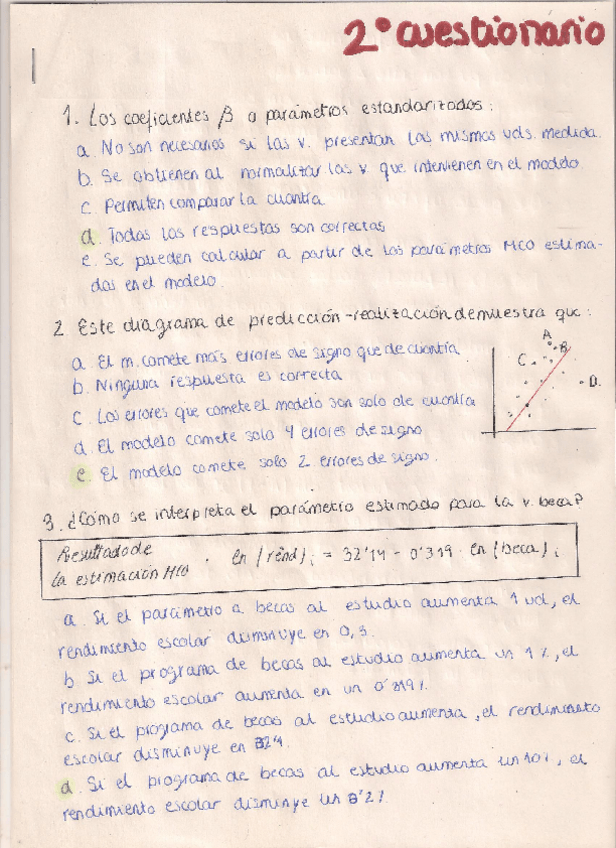 2º cuestionario
1. Los coeficientes β o parámetros estandarizados:
a. No son necesarios si las v. presentan las mismas uds. medida.
b. Se obtienen al normalizar las v que intervienen en el modelo.
c. Permiten comparar la cuantía
d. Todas las respuestas son correctas
e. Se pueden calcular a partir de los parámetros MCO estima-
das en el modelo.
2 Este diagrama de predicción-realización demuestra que:
a. El m. comete más errores de signo que de cuantía
b. Ninguna respuesta es correcta
c. Los errores que comete el modelo son solo de cuantía
d. El modelo comete solo 4 errores de signo
e. El modelo comete solo 2 errores de signo.
A
B
C
D.
3. ¿Cómo se interpreta el parámetro estimado para la v. beca?
Resultado de
la estimación MCO . ln (rend)i = 32'14 - 0'319 · ln (beca) i
a. Si el parámetro a becas al estudio aumenta 1 ud, el
rendimiento escolar disminuye en 0,3.
b Si el programa de becas al estudio aumenta un 1%, el
rendimiento escolar aumenta en un 0'319%.
c. Si el programa de becas al estudio aumenta, el rendimiento
escolar disminuye en 32'1.
d. Si el programa de becas al estudio aumenta un 10%, el
rendimiento escolar disminuye un 3'2%